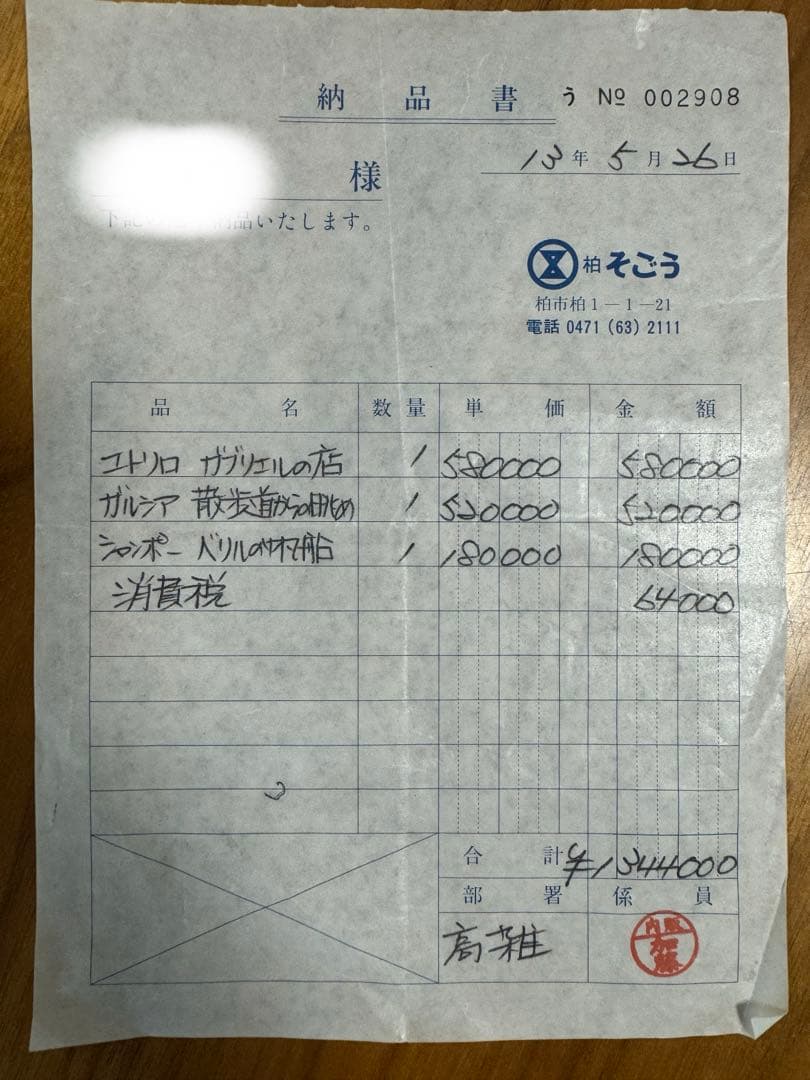 納品書 う № 002908
13年5月26日
様
下記の 納品いたします。
柏 そごう
柏市柏1—1—21
電話 0471 (63) 2111
品名 数量 単価 金額
コトリロ ガブリエルの店 1 580000 580000
ガルシア 散歩道からの眺め 1 520000 520000
シャンポー ベリルの 船 1 180000 180000
消費税 64000
合計 ¥1344000
部署 係員
高雑 内販 加藤